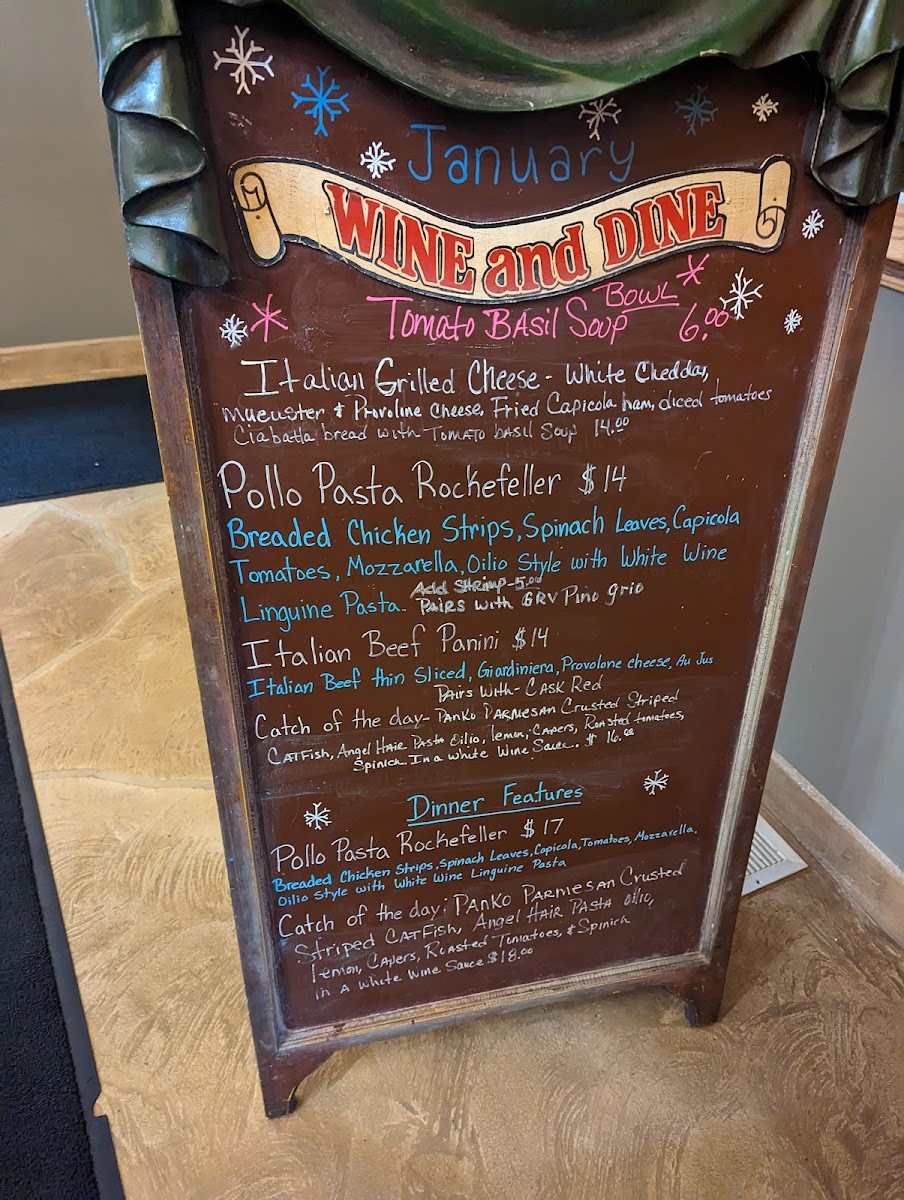 January
WINE and DINE
Tomato Basil Soup Bowl 6.00
Italian Grilled Cheese - White Cheddar,
Mueuster & Provoline Cheese, Fried Capicola ham, diced tomatoes
Ciabatta bread with Tomato basil Soup 14.00
Pollo Pasta Rockefeller $14
Breaded Chicken Strips, Spinach Leaves, Capicola
Tomatoes, Mozzarella, Oilio Style with White Wine
Linguine Pasta. Add Shrimp - 5.00
Pairs with GRV Pino grio
Italian Beef Panini $14
Italian Beef thin Sliced, Giardiniera, Provolone cheese, Au Jus
Pairs with - Cask Red
Catch of the day - Panko Parmesan Crusted Striped
Catfish, Angel Hair Pasta Oilio, lemon, Capers, Roasted tomatoes,
Spinich In a White Wine Sauce. $16.00
Dinner Features
Pollo Pasta Rockefeller $17
Breaded Chicken Strips, Spinach Leaves, Copicola, Tomatoes, Mozzarella,
Oilio Style with White Wine Linguine Pasta
Catch of the day: Panko Parmesan Crusted
Striped Catfish, Angel Hair Pasta Oilio,
lemon, Capers, Roasted Tomatoes, & Spinich
in A White Wine Sauce $18.00